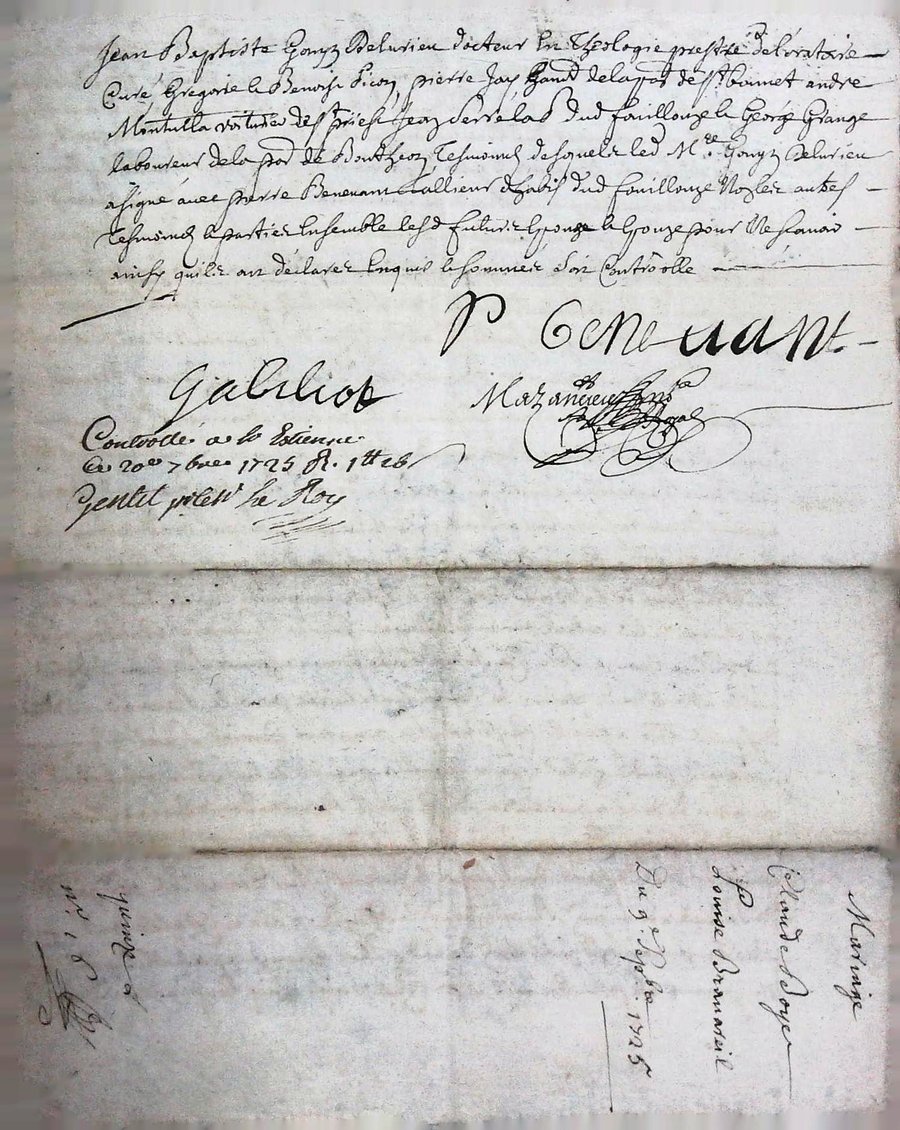 Jean Baptiste Gonyn Delurieu docteur En Theologie prestre de loratoire
Curé, Gregoire & Benoist Picon, pierre Jay, de la par de st bonnet andre
Montulla voiturier de st priest Jean Serrélas dud fouillouze & George Grange
laboureur de la par de Boutheon Tesmoins desquels led Mre Gonyn Delurieu
a signé avec pierre Benevant dud fouillouze Non les autres
Tesmoins & parties Ensemble lesd futurs Epoux & Epouze pour Ne scavoir
ainsy quils ont déclarés Enquis & sommés Soit Controolle
P Benevant
Galichot
Mazancieu Royal
Controollé a St Estienne
Le 20e 7bre 1725 R. 1tt
Gentil pr le Roy
Mariage
Claude Boyer
Louise
Du 9e Sepbre 1725
quinze s